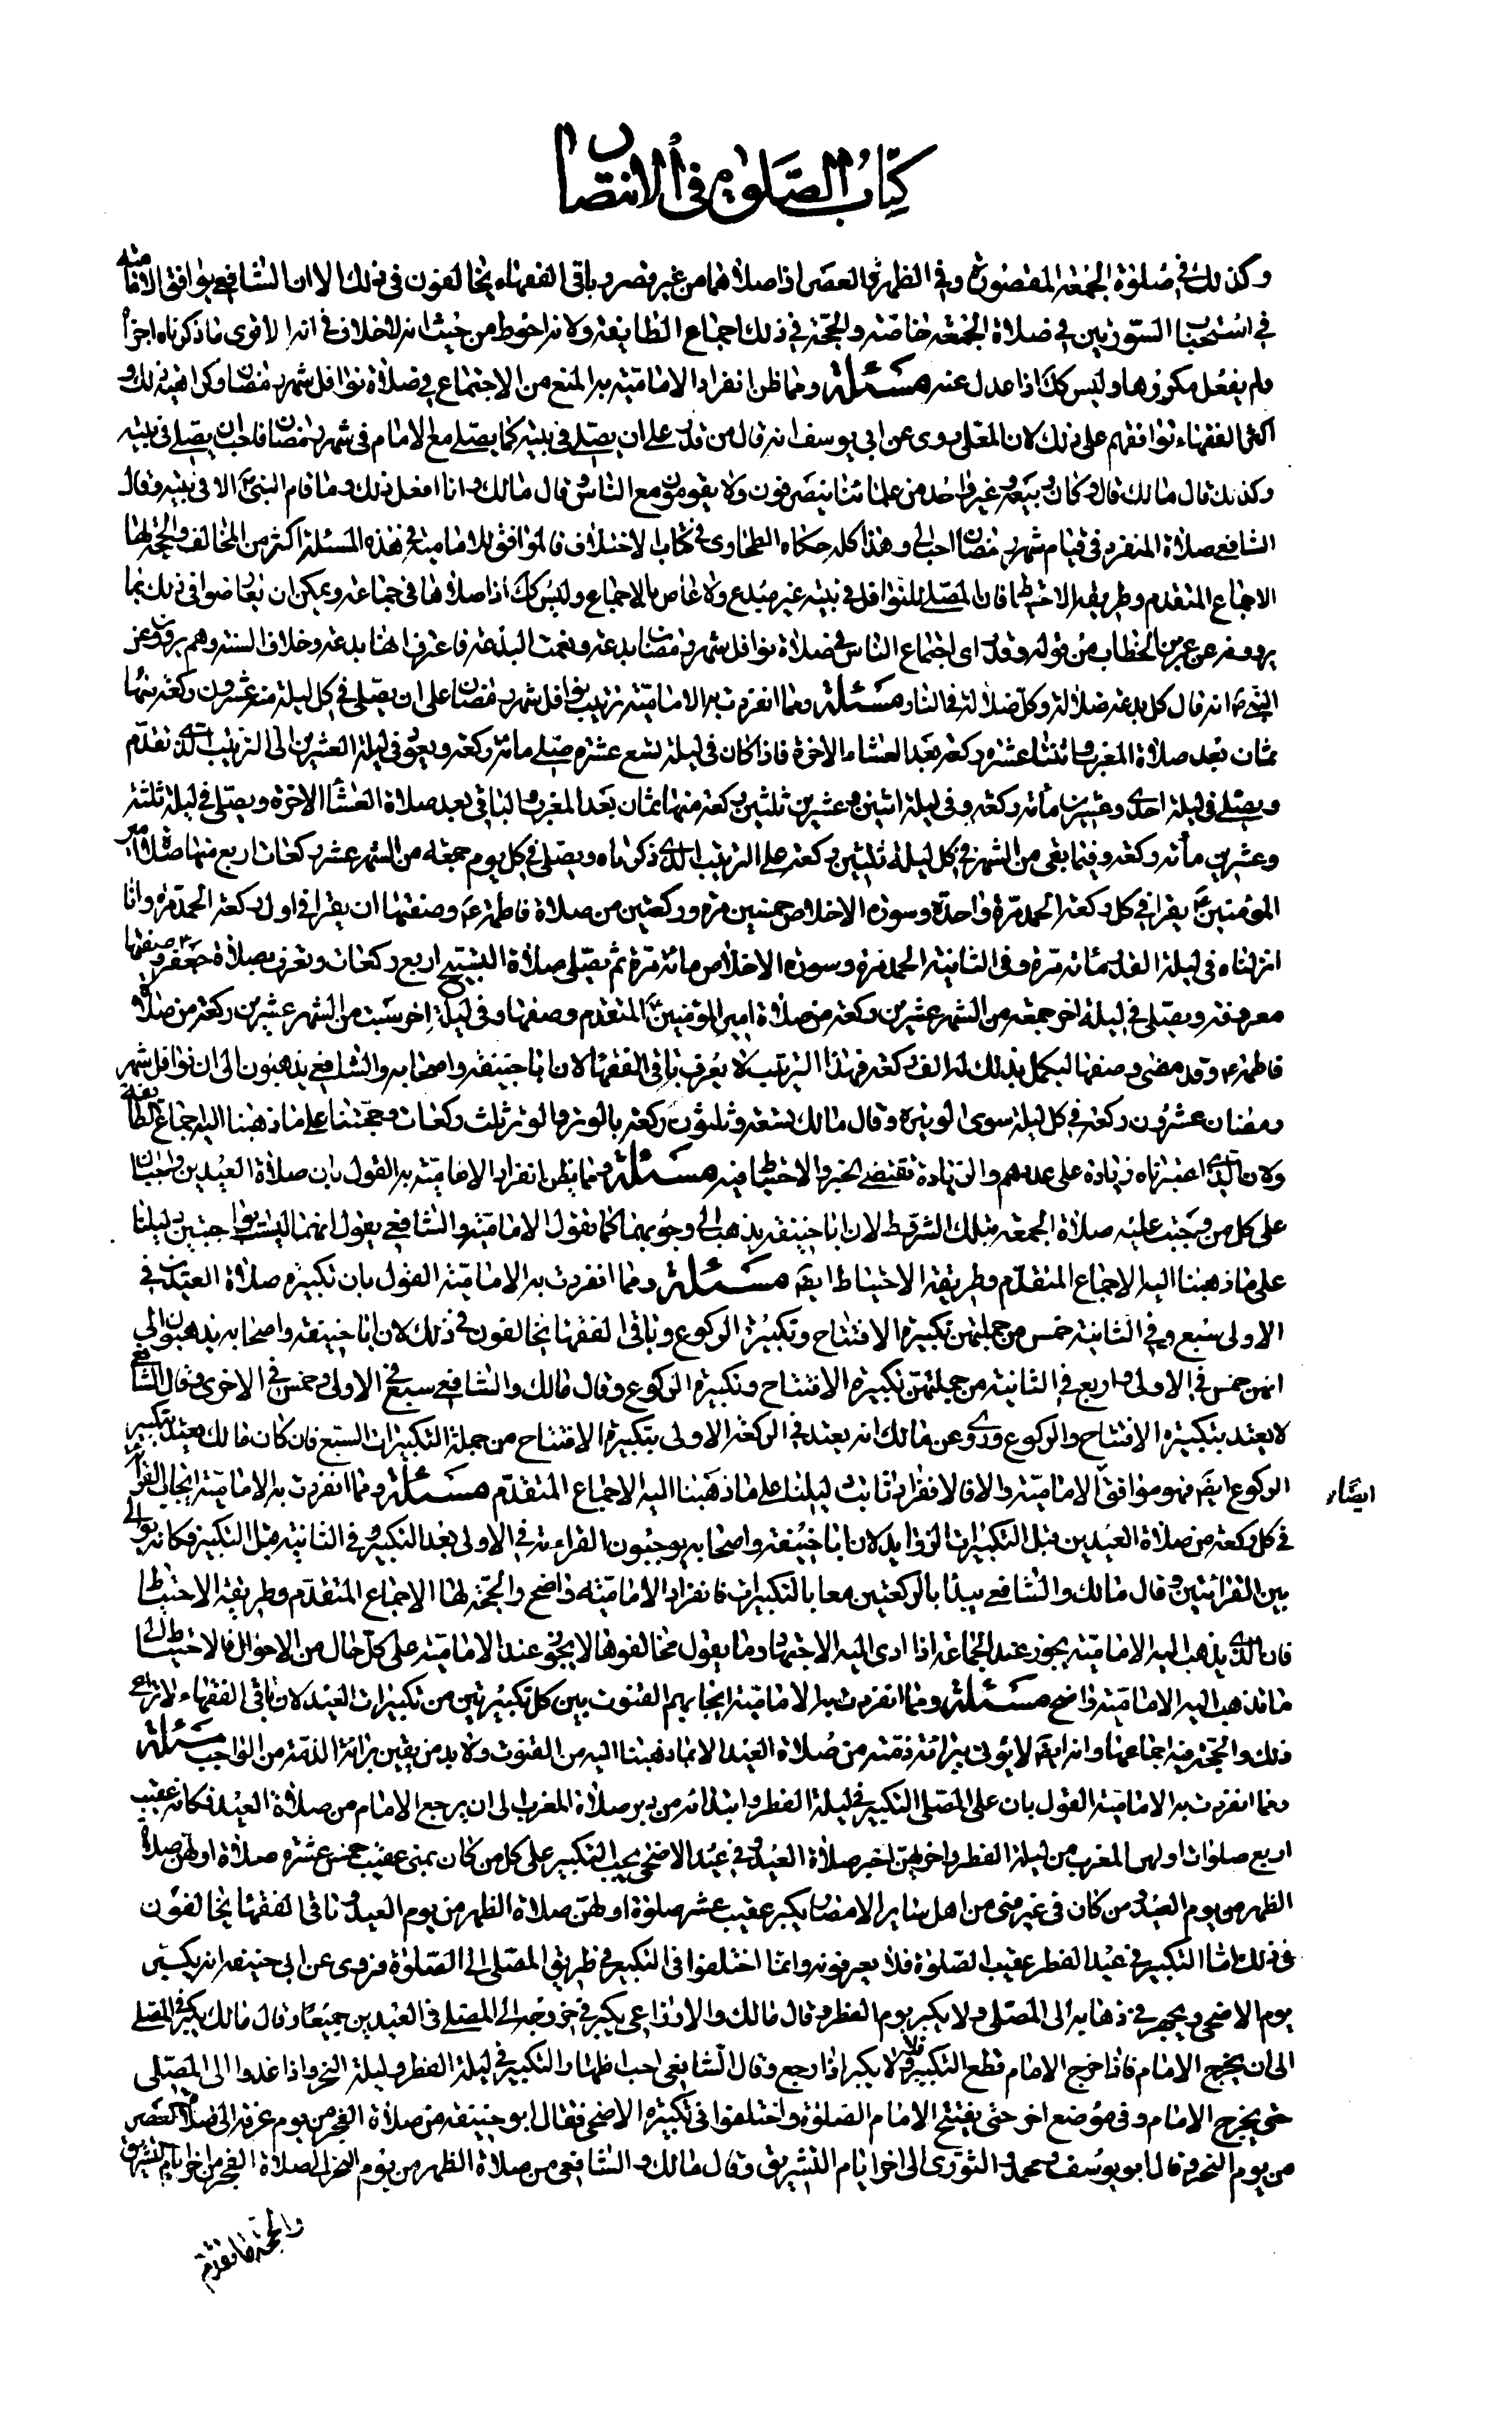 كتاب الصلوة في الانتصار
وكذلك في صلوة الجمعة المقصورة وفي الظهر والعصر اذا صلاهما من غير قصر وباقي الفقهاء يخالفون في ذلك الا ان الشافعي يوافق الامامية
في استحباب السورتين في صلاة الجمعة خاصة والحجة في ذلك اجماع الطايفة ولانه احوط من حيث انه لا خلاف في انه الاقوى ما ذكرناه اجزأ
ولم يفعل مكروها وليس كك اذا عدل عنه مسئلة ومما ظن انفراد الامامية به المنع من الاجتماع في صلاة نوافل شهر رمضان وكراهية ذلك و
اكثر الفقهاء توافقهم على ذلك لان المعلى روى عن ابي يوسف انه قال من قدر على ان يصلي في بيته كما يصلي مع الامام في شهر رمضان فاحب ان يصلي في بيته
وكذلك قال مالك قال وكان ربيعة وغير واحد من علمائنا ينصرفون ولا يقومون مع الناس وقال مالك وانا افعل ذلك وما قام النبي ص الا في بيته وقال
الشافعي صلاة المنفرد في قيام شهر رمضان احب الي وهذا كله حكاه الطحاوي في كتاب الاختلاف فالموافق للامامية في هذه المسئلة اكثر من المخالف والحجة لها
الاجماع المتقدم وطريقة الاحتياط فان المصلي للنوافل في بيته غير مبدع ولا عاص بالاجماع وليس كك اذا صلاها في جماعة ويمكن ان يعارضوا في ذلك بما
يروونه عن عمر بن الخطاب من قوله وقد راى اجتماع الناس في صلاة نوافل شهر رمضان بدعة ونعمت البدعة فاعترف انها بدعة وخلاف السنة وهم يروون عن
النبي ص انه قال كل بدعة ضلالة وكل ضلالة في النار مسئلة ومما انفردت به الامامية ترتيب نوافل شهر رمضان على ان يصلى في كل ليلة منه عشرون ركعة منها
ثمان بعد صلاة المغرب واثنتا عشره ركعة بعد العشاء الاخرة فاذا كان في ليلة تسع عشرة صلى مائة ركعة ويعود في ليلة العشرين الى الترتيب الذي تقدم
ويصلي في ليلة احدى وعشرين مأة ركعة وفي ليلة اثنين وعشرين ثلثين ركعة منها ثمان بعد المغرب والباقي بعد صلاة العشأ الاخرة ويصلي في ليلة ثلثة
وعشرين مأة ركعة وفيما بقي من الشهر في كل ليلة ثلثين ركعة على الترتيب الذي ذكرناه ويصلي في كل يوم جمعة من الشهر عشر ركعات اربع منها صلاة امير
المؤمنين ع يقرا في كل ركعة الحمد مرة واحدة وسورة الاخلاص خمسين مرة وركعتين من صلاة فاطمة ع وصفتها ان يقرا في اول ركعة الحمد مرة وانا
انزلناه في ليلة القدر مائة مرة وفي الثانية الحمد مرة وسورة الاخلاص مائة مرة ثم يصلي صلاة التسبيح اربع ركعات وتعرف بصلاة جعفر ع وصفتها
معروفة ويصلي في ليلة اخر جمعة من الشهر عشرين ركعة من صلاة امير المؤمنين ع المتقدم وصفها وفي ليلة اخر سبت من الشهر عشرين ركعة من صلاة
فاطمة ع وقد مضى وصفها ليكمل بذلك له الف ركعة فهذا الترتيب لا يعرف باقي الفقهاء لان ابا حنيفة واصحابه والشافعي يذهبون الى ان نوافل شهر
رمضان عشرون ركعة في كل ليلة سوى الوتيرة وقال مالك تسعة وثلثون ركعة بالوتر والوتر ثلث ركعات وحجتنا على ما ذهبنا اليه اجماع الطايفة
ولان الذي اعتبرناه زيادة على عددهم والزيادة تقتضي الخير والاحتياط فيه مسئلة ومما يظن انفراد الامامية به القول بان صلاة العيدين واجبتان
على كل من وجبت عليه صلاة الجمعة بتلك الشروط لان ابا حنيفة يذهب الى وجوبهما كما يقول الامامية والشافعي يقول انهما ليستا بواجبتين دليلنا
على ما ذهبنا اليه الاجماع المتقدم وطريقة الاحتياط ايضا مسئلة ومما انفردت به الامامية القول بان تكبيرة صلاة العيدين في
الاولى سبع وفي الثانية خمس من جملتهن تكبيرة الافتتاح وتكبيرة الركوع وباقي الفقهاء يخالفون في ذلك لان ابا حنيفة واصحابه يذهبون الى
انهن خمس في الاولى واربع في الثانية من جملتهن تكبيرة الافتتاح وتكبيرة الركوع وقال مالك والشافعي سبع في الاولى وخمس في الاخرى وقال الشافعي
لا يعتد بتكبيرة الافتتاح والركوع وروي عن مالك انه يعتد في الركعة الاولى بتكبيرة الافتتاح من جملة التكبيرات السبع فان كان مالك يعتد بتكبير
الركوع ايضا فهو موافق للامامية والا فالانفراد ثابت دليلنا على ما ذهبنا اليه الاجماع المتقدم مسئلة ومما انفردت به الامامية ايجاب القراءة
ايضا
في كل ركعة من صلاة العيدين قبل التكبيرات الزوايد لان ابا حنيفة واصحابه يوجبون القراءة في الاولى بعد التكبير وفي الثانية قبل التكبير فكانه يوالي
بين القرائتين وقال مالك والشافعي يبدأ بالركعتين معا بالتكبيرات فانفراد الامامية واضح والحجة لها الاجماع المتقدم وطريقة الاحتياط
فان الذي يذهب اليه الامامية يجوز عند الجماعة اذا ادى اليه الاجتهاد وما يقول مخالفوها لا يجوز عند الامامية على كل حال من الاحوال فالاحتياط في
ما تذهب اليه الامامية واضح مسئلة ومما انفردت به الامامية ايجابهم القنوت بين كل تكبيرتين من تكبيرات العيد لان باقي الفقهاء لا يراعي
ذلك والحجة فيه اجماعها وانه ايضا لا يوقن ببرائة ذمته من صلاة العيد الا بما ذهبنا اليه من القنوت ولا بد من يقين برائة الذمة من الواجب مسئلة
ومما انفردت به الامامية القول بان على المصلي التكبير في ليلة الفطر وابتدائه من دبر صلاة المغرب الى ان يرجع الامام من صلاة العيد فكانه عقيب
اربع صلوات اولهن المغرب من ليلة الفطر واخرهن اخر صلاة العيد وفي عيد الاضحى يجب التكبير على كل من كان بمنى عقيب خمس عشرة صلاة اولهن صلاة
الظهر من يوم العيد ومن كان في غير منى من اهل ساير الامصار يكبر عقيب عشر صلوة اولهن صلاة الظهر من يوم العيد وباقي الفقهاء يخالفون
في ذلك اما التكبير في عيد الفطر عقيب الصلوة فلا يعرفونه وانما اختلفوا في التكبير في طريق المصلى الى الصلوة فروي عن ابي حنيفة انه يكبر
يوم الاضحى ويجهر في ذهابه الى المصلى ولا يكبر يوم الفطر وقال مالك والاوزاعي يكبر في خروجه الى المصلى في العيدين جميعا وقال مالك يكبر في المصلى
الى ان يخرج الامام فاذا خرج الامام قطع التكبير ولا يكبر اذا رجع وقال الشافعي احب اظهار التكبير في ليلة الفطر وليلة النحر واذا غدوا الى المصلى
حتى يخرج الامام وفي موضع اخر حتى يفتتح الامام الصلوة واختلفوا في تكبيرة الاضحى فقال ابو حنيفة من صلاة الفجر من يوم عرفة الى صلاة العصر
من يوم النحر وقال ابو يوسف ومحمد والثوري الى اخر ايام التشريق وقال مالك والشافعي من صلاة الظهر من يوم النحر الى صلاة الفجر من اخر ايام التشريق
والحجة ما تقدم